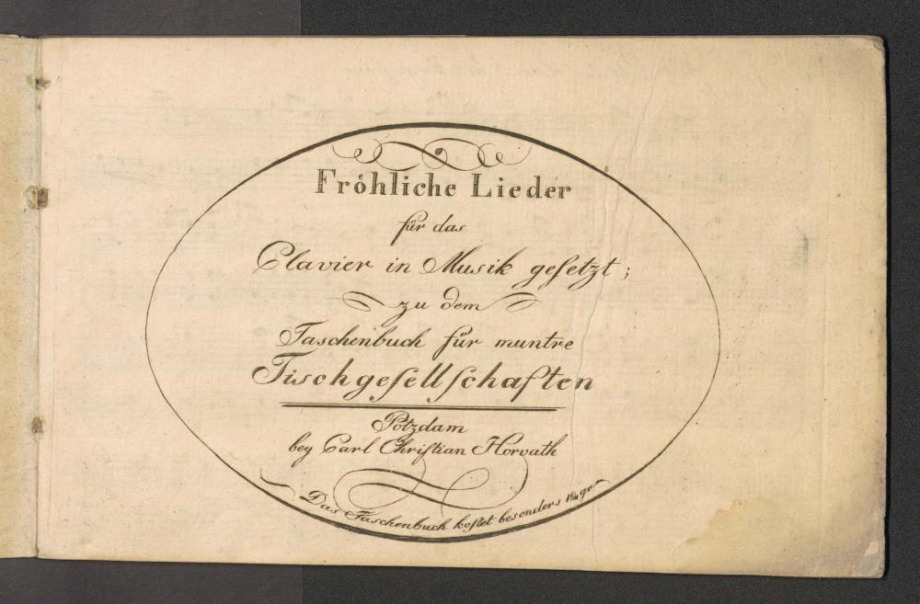 Fröhliche Lieder
für das
Clavier in Musik geſetzt;
zu dem
Taschenbuch für muntre
Tischgeſellſchaften
Potzdam
bey Carl Chriſtian Horvath
Das Taschenbuch koſtet besonders gr